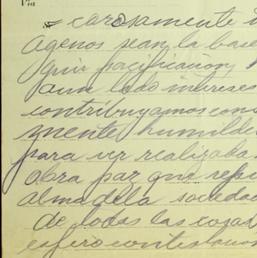 carosamente
agenos sean la base
guir pacificacion,
aun lado interese
contribuyamos con
mente humilde
para ver realizaba
obra paz que
alma de la sociedad
de todas las cozas
espero contestacion